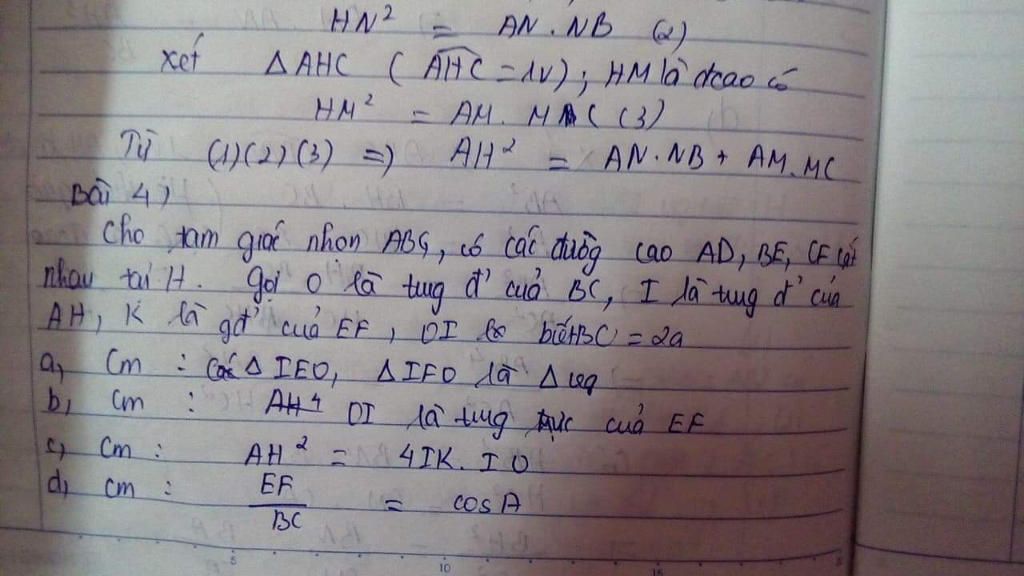 HN² = AN.NB (2)
xét ΔAHC (AHC = 1v); HM là đcao có
HM² = AM.MC (3)
Từ (1)(2)(3) => AH² = AN.NB + AM.MC
Bài 4)
Cho tam giác nhọn ABC, có các đường cao AD, BE, CF cắt
nhau tại H. Gọi O là tung đ' của BC, I là tung đ' của
AH, K là gđ' của EF, OI biết BC = 2a
a, Cm : các Δ IEO, Δ IFO là Δ
b, Cm : OI là tung trực của EF
c, Cm : AH² = 4IK.IO
d, cm : EF/BC = cosA
5 10 15